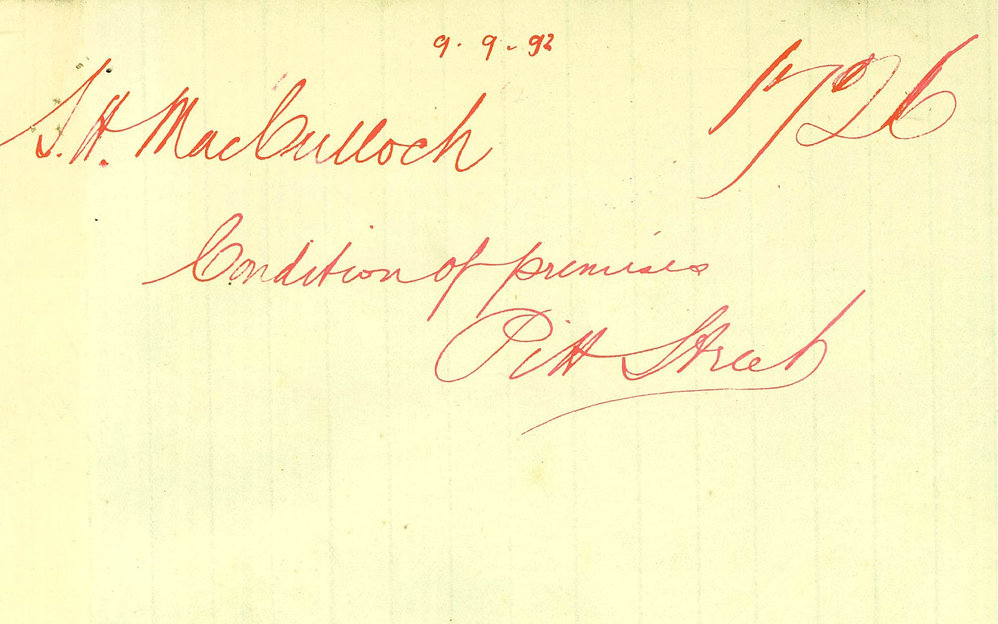 9.9-92
S.H. MacCulloch 1726
Condition of premises
Pitt Street